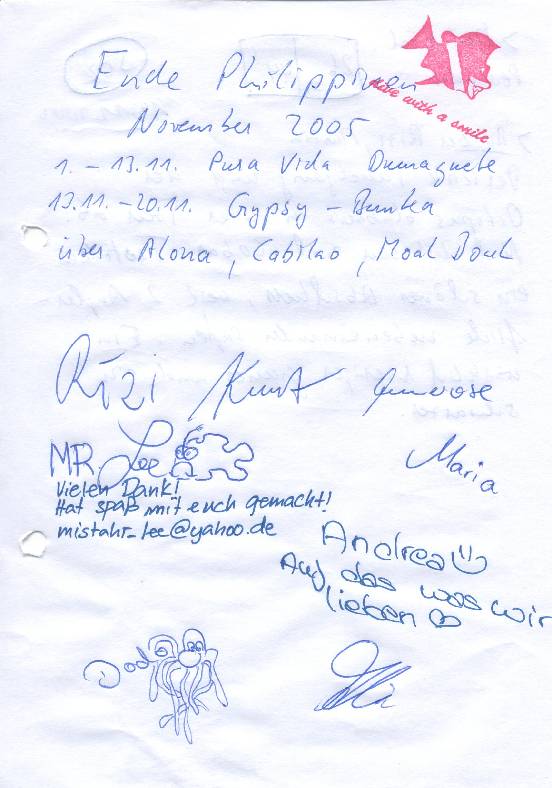 Ende Philippinen
dive with a smile
November 2005
1. – 13.11. Pura Vida Dumaguete
13.11. – 20.11. Gypsy – Banka
über Alona, Cabilao, Moal Boal
Rizi Kurt
Maria
MR. Lee
Vielen Dank!
Hat spaß mit euch gemacht!
mistahr_lee@yahoo.de
Andrea
Auf das was wir
lieben
Dodo